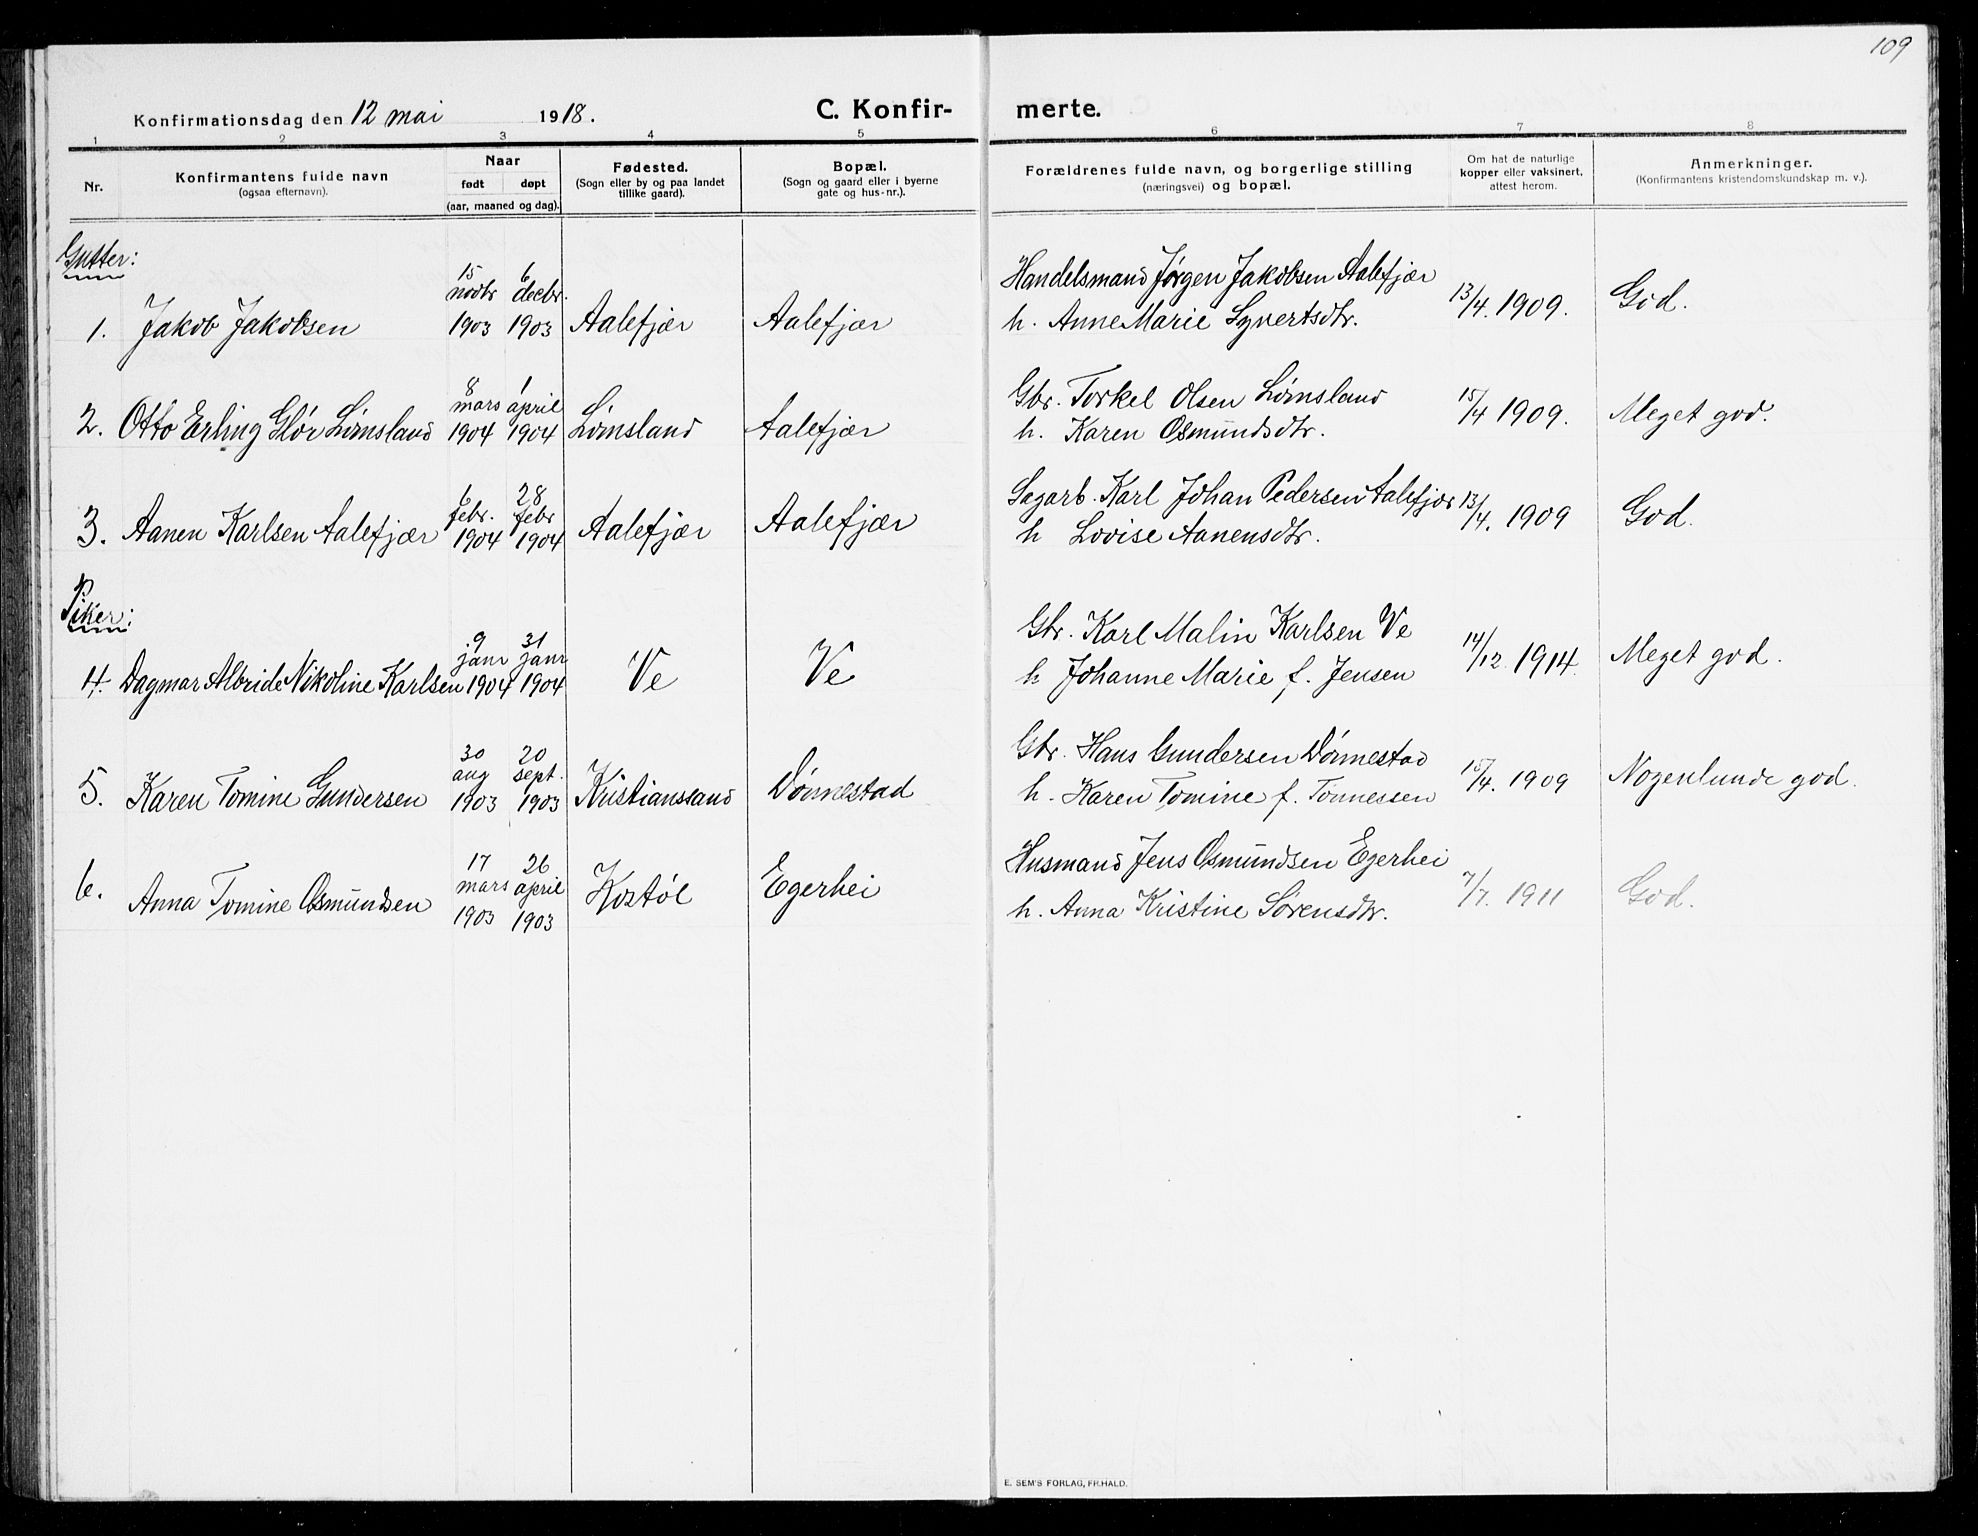 109
Konfirmationsdag den 12 mai 1918. C. Konfir- merte.
1 2 3 4 5 6 7 8
Nr.
Konfirmantens fulde navn
(ogsaa efternavn).
Naar
født døpt
(aar, maaned og dag).
Fødested.
(Sogn eller by og paa landet
tillike gaard).
Bopæl.
(Sogn og gaard eller i byerne
gate og hus-nr.).
Forældrenes fulde navn, og borgerlige stilling
(næringsvei) og bopæl.
Om hat de naturlige
kopper eller vaksinert,
attest herom.
Anmerkninger.
(Konfirmantens kristendomskundskap m. v.).
Gutter:
1. Jakob Jakobsen
15 novbr 1903
6 decbr. 1903
Aalefjær
Aalefjær
Handelsmand Jørgen Jakobsen Aalefjær
h. Anne Marie Syvertsdtr.
13/4. 1909.
God.
2. Otto Erling Glór Lömsland
8 mars 1904
1 april 1904
Lömsland
Aalefjær
Gbr. Torkel Olsen Lömsland
h. Karen Osmundsdtr.
15/4 1909.
Meget god.
3. Aanen Karlsen Aalefjær
6 febr. 1904
28 febr 1904
Aalefjær
Aalefjær
Sagarb. Karl Johan Pedersen Aalefjær
h Lovise Aanensdtr.
13/4. 1909
God.
Piker:
4. Dagmar Albride Nikoline Karlsen
9 janr 1904
31 janr 1904
Ve
Ve
Gbr. Karl Malin Karlsen Ve
h Johanne Marie f. Jensen
14/12. 1914.
Meget god.
5. Karen Tomine Gundersen
30 aug 1903
20 sept. 1903
Kristianssand
Dönnestad
Gbr. Hans Gundersen Dönnestad
h. Karen Tomine f. Tönnessen
15/4. 1909
Nogenlunde god.
6. Anna Tomine Osmundsen
17 mars 1903
26 april 1903
Kostöl
Egerhei
Husmand Jens Osmundsen Egerhei
h. Anna Kristine Sörensdtr.
7/7. 1911
God.
E. SEM'S FORLAG, FR.HALD.